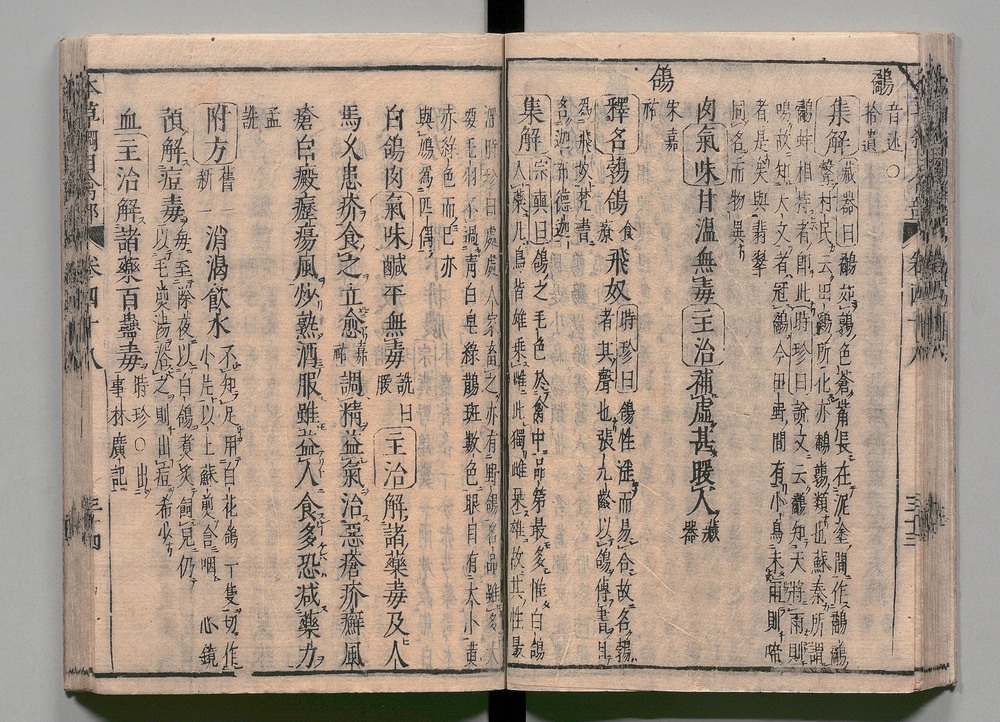 鷸音述○拾遺
集解藏器曰鷸如鶉色蒼觜長在泥塗間作鷸鷸
聲村民云田鷄所化亦鵪鶉類也蘇秦所謂
鷸蚌相持者即此時珍曰說文云鷸知天將雨則
鳴故知天文者冠鷸今田野間有小鳥未雨則啼
者是矣與翡翠
同名而物異
肉氣味甘溫無毒主治補虛甚暖人藏器
鴿宋嘉祐
釋名鵓鴿食療飛奴時珍曰鴿性淫而易合故名鵓
者其聲也張九齡以鴿傳書目
為飛奴梵書
名迦布德迦
集解宗奭曰鴿之毛色於禽中品第最多惟白鴿
入藥凡鳥皆雄乘雌此獨雌乘雄故其性最
淫時珍曰處處人家畜之亦有野鴿名品雖多大
要毛羽不過青白皂綠鵲斑數色眼目有大小黃
赤綠色而已亦
與鳩為匹偶
白鴿肉氣味鹹平無毒詵曰暖主治解諸藥毒及人
馬久患疥食之立愈嘉祐調精益氣治惡瘡疥癬風
瘡白癜癧瘍風炒熟酒服雖益人食多恐減藥力
孟詵
附方舊一新一消渴飲水不知足用白花鴿一隻切作
小片以土蘇煎含咽心鏡
預解痘毒每至除夜以白鴿煮炙飼兒仍
以毛煎湯浴之則出痘希少
血主治解諸藥百蠱毒時珍○出
事林廣記
本草綱目禽部 卷四十八 三十四